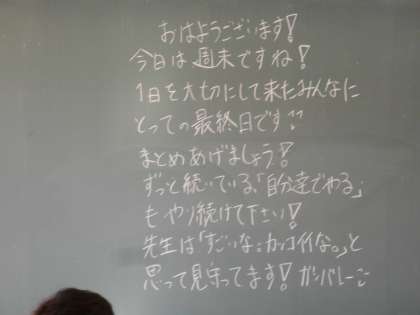 おはようございます!
今日は週末ですね!
1日を大切にして来たみんなに
とっての最終日です!!
まとめあげましょう!
ずっと続いている、「自分達でやる」
もやり続けて下さい!
先生は「すごいな。カッコイイな。」と
思って見守ってます!ガンバレー